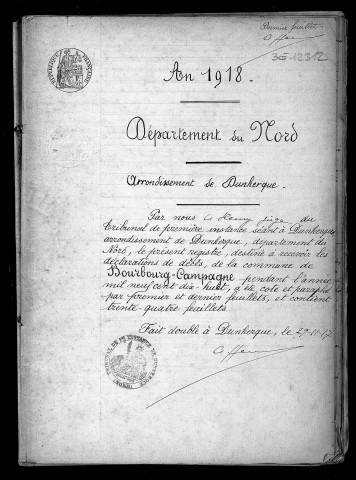 Premier feuillet
3E 12312
RÉPUBLIQUE FRANÇAISE
An 1918.
Département du Nord
Arrondissement de Dunkerque.
Par nous juge du
tribunal de première instance séant à Dunkerque
arrondissement de Dunkerque, département du
Nord, le présent registre, destiné à recevoir les
déclarations de décès, de la commune de
Bourbourg-Campagne pendant l'année
mil neuf cent dix-huit, a été coté et paraphé
par premier et dernier feuillets, et contient
trente-quatre feuillets.
Fait double à Dunkerque, le